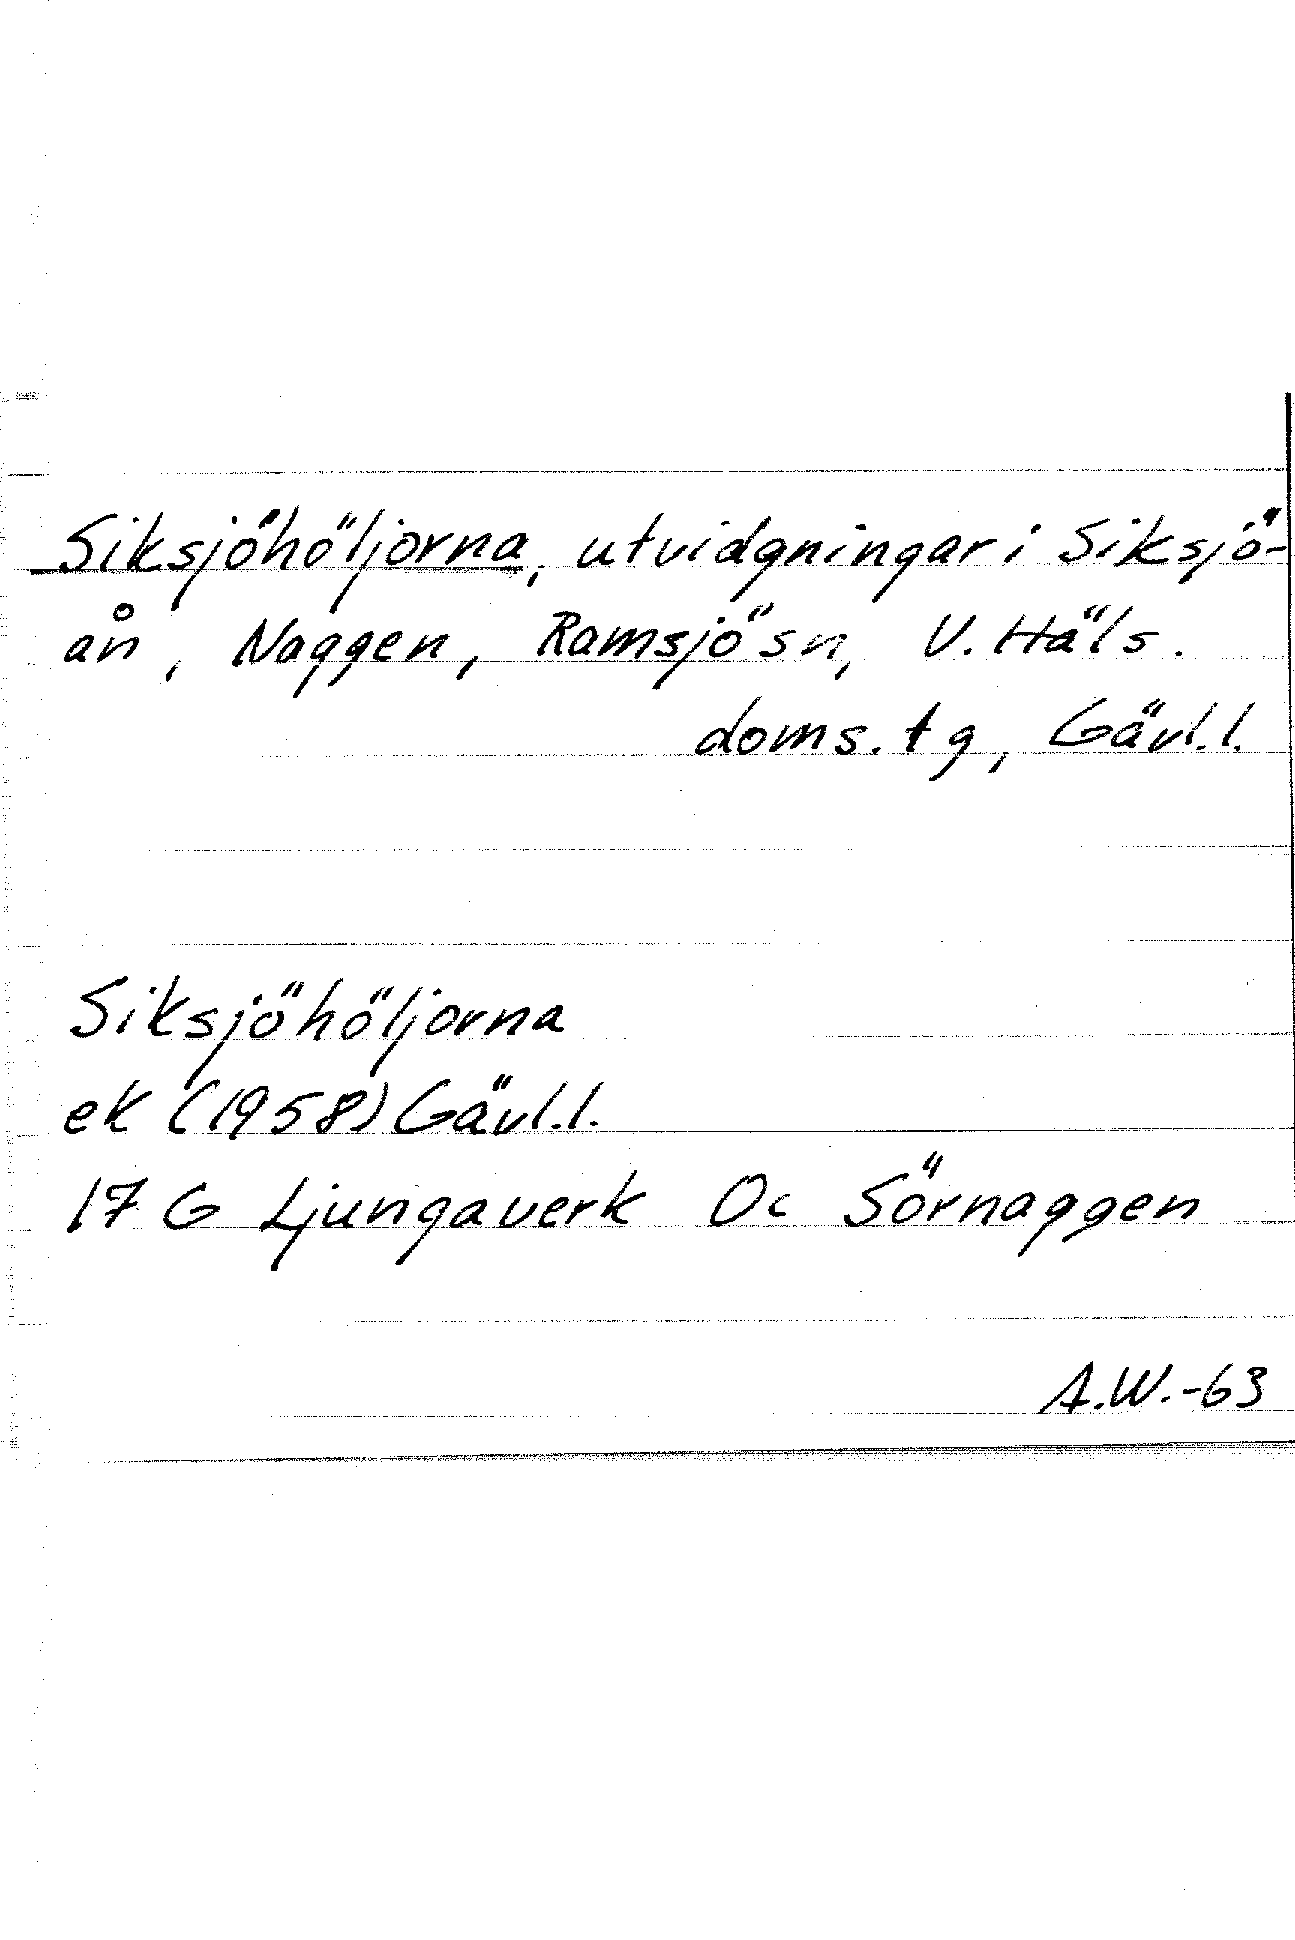 Siksjöhöljorna, utvidgningar i Siksjö-
ån, Naggen, Ramsjö sn, V. Häls.
doms. tg, Gävl.l.
Siksjöhöljorna
ek (1958) Gävl.l.
17 G Ljungaverk Oc Sörnaggen
A.W.-63